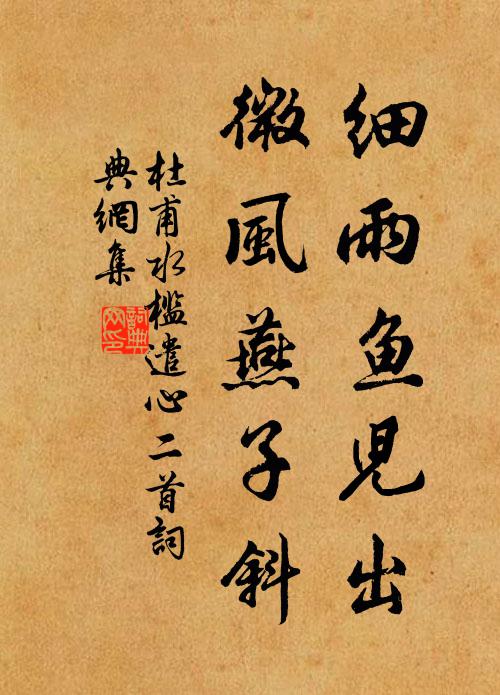 细雨鱼児出
微風燕子斜
杜甫水檻遣心二首詞
典網集
詞典网印